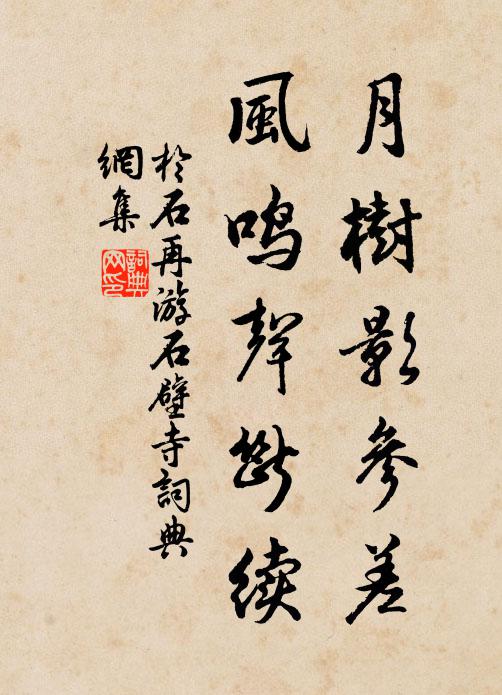 月樹影參差
風鳴聲斷續
於石再游石壁寺詞典
網集
詞典
网印